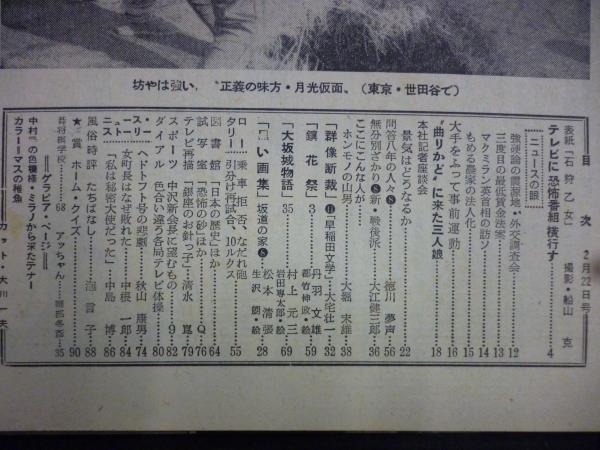 坊やは強い、〝正義の味方・月光仮面〟(東京・世田谷で)
目次 2月22日号
表紙「石狩乙女」 撮影・船山克
テレビに恐怖番組横行す 4
ニュースの眼
強硬論の震源地・外交調査会 12
三度目の最低賃金法案 13
マクミラン英首相の訪ソ 14
もめる農家の法人化 15
大手をふって事前運動 16
〝曲りかど〟に来た三人娘 18
本社記者座談会
景気はどうなるか 22
問答八年の人々⑧ 徳川夢声 56
無分別ざかり⑧新・戦後派 大江健三郎 36
ここにこんな人が
ホンモノの山男 大堀末雄 38
「群像断裁」⑪「早稲田文学」 大宅壮一 32
「鎮花祭」3 丹羽文雄 都竹伸政・絵 59
「大坂城物語」35 村上元三 岩田専太郎・絵 69
「黒い画集」坂道の家⑧ 松本清張 生沢朗・絵 28
ロータリー 乗車拒否、なだれ砲 引分け再試合、10ルクス 55
図書館「日本の歴史」ほか 64
試写室「恐怖の砂」ほか Q 76
テレビ再描「銀座のお針っ子」 清水崑 79
スポーツ 中沢新会長に望むもの 9 82
ダイアル 色合い違う各局テレビ体操 80
ニュース・ストーリー
ヘドトフト号の悲劇 秋山康男 74
女町長はなぜ敗れた 中根一郎 84
「私は秘密大使だった」 中島博 86
風俗時評 たちばなし 泡言子 88
★一賞ホーム・クイズ 90
碁将棋学校 68
アッちゃん 岡部冬彦 35
=グラビア・ページ=
中村の色模様・ミラノから来たテナー
カラー=マスの稚魚
カット・大川一夫